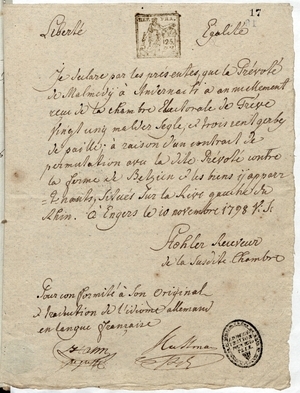 17
Liberté Egalité
Je declare par les presentes, que la Prévoté
de Malmedÿ à Andernach a annuellement
reçu de la chambre Electorale de Treve
vingt cinq malder Segle, et trois cent gerbe
de paille; à raison d'un contract de
permutation avec la dite Prévote contre
la ferme de et les biens y appar-
tenants, situés sur la Rive gauche du
Rhin. à Engers le 10 novembre 1798 V. S.
Receveur
de la Susdite Chambre
Pour conformité à son Original
Traduction de l'idiome allemand
en langue française